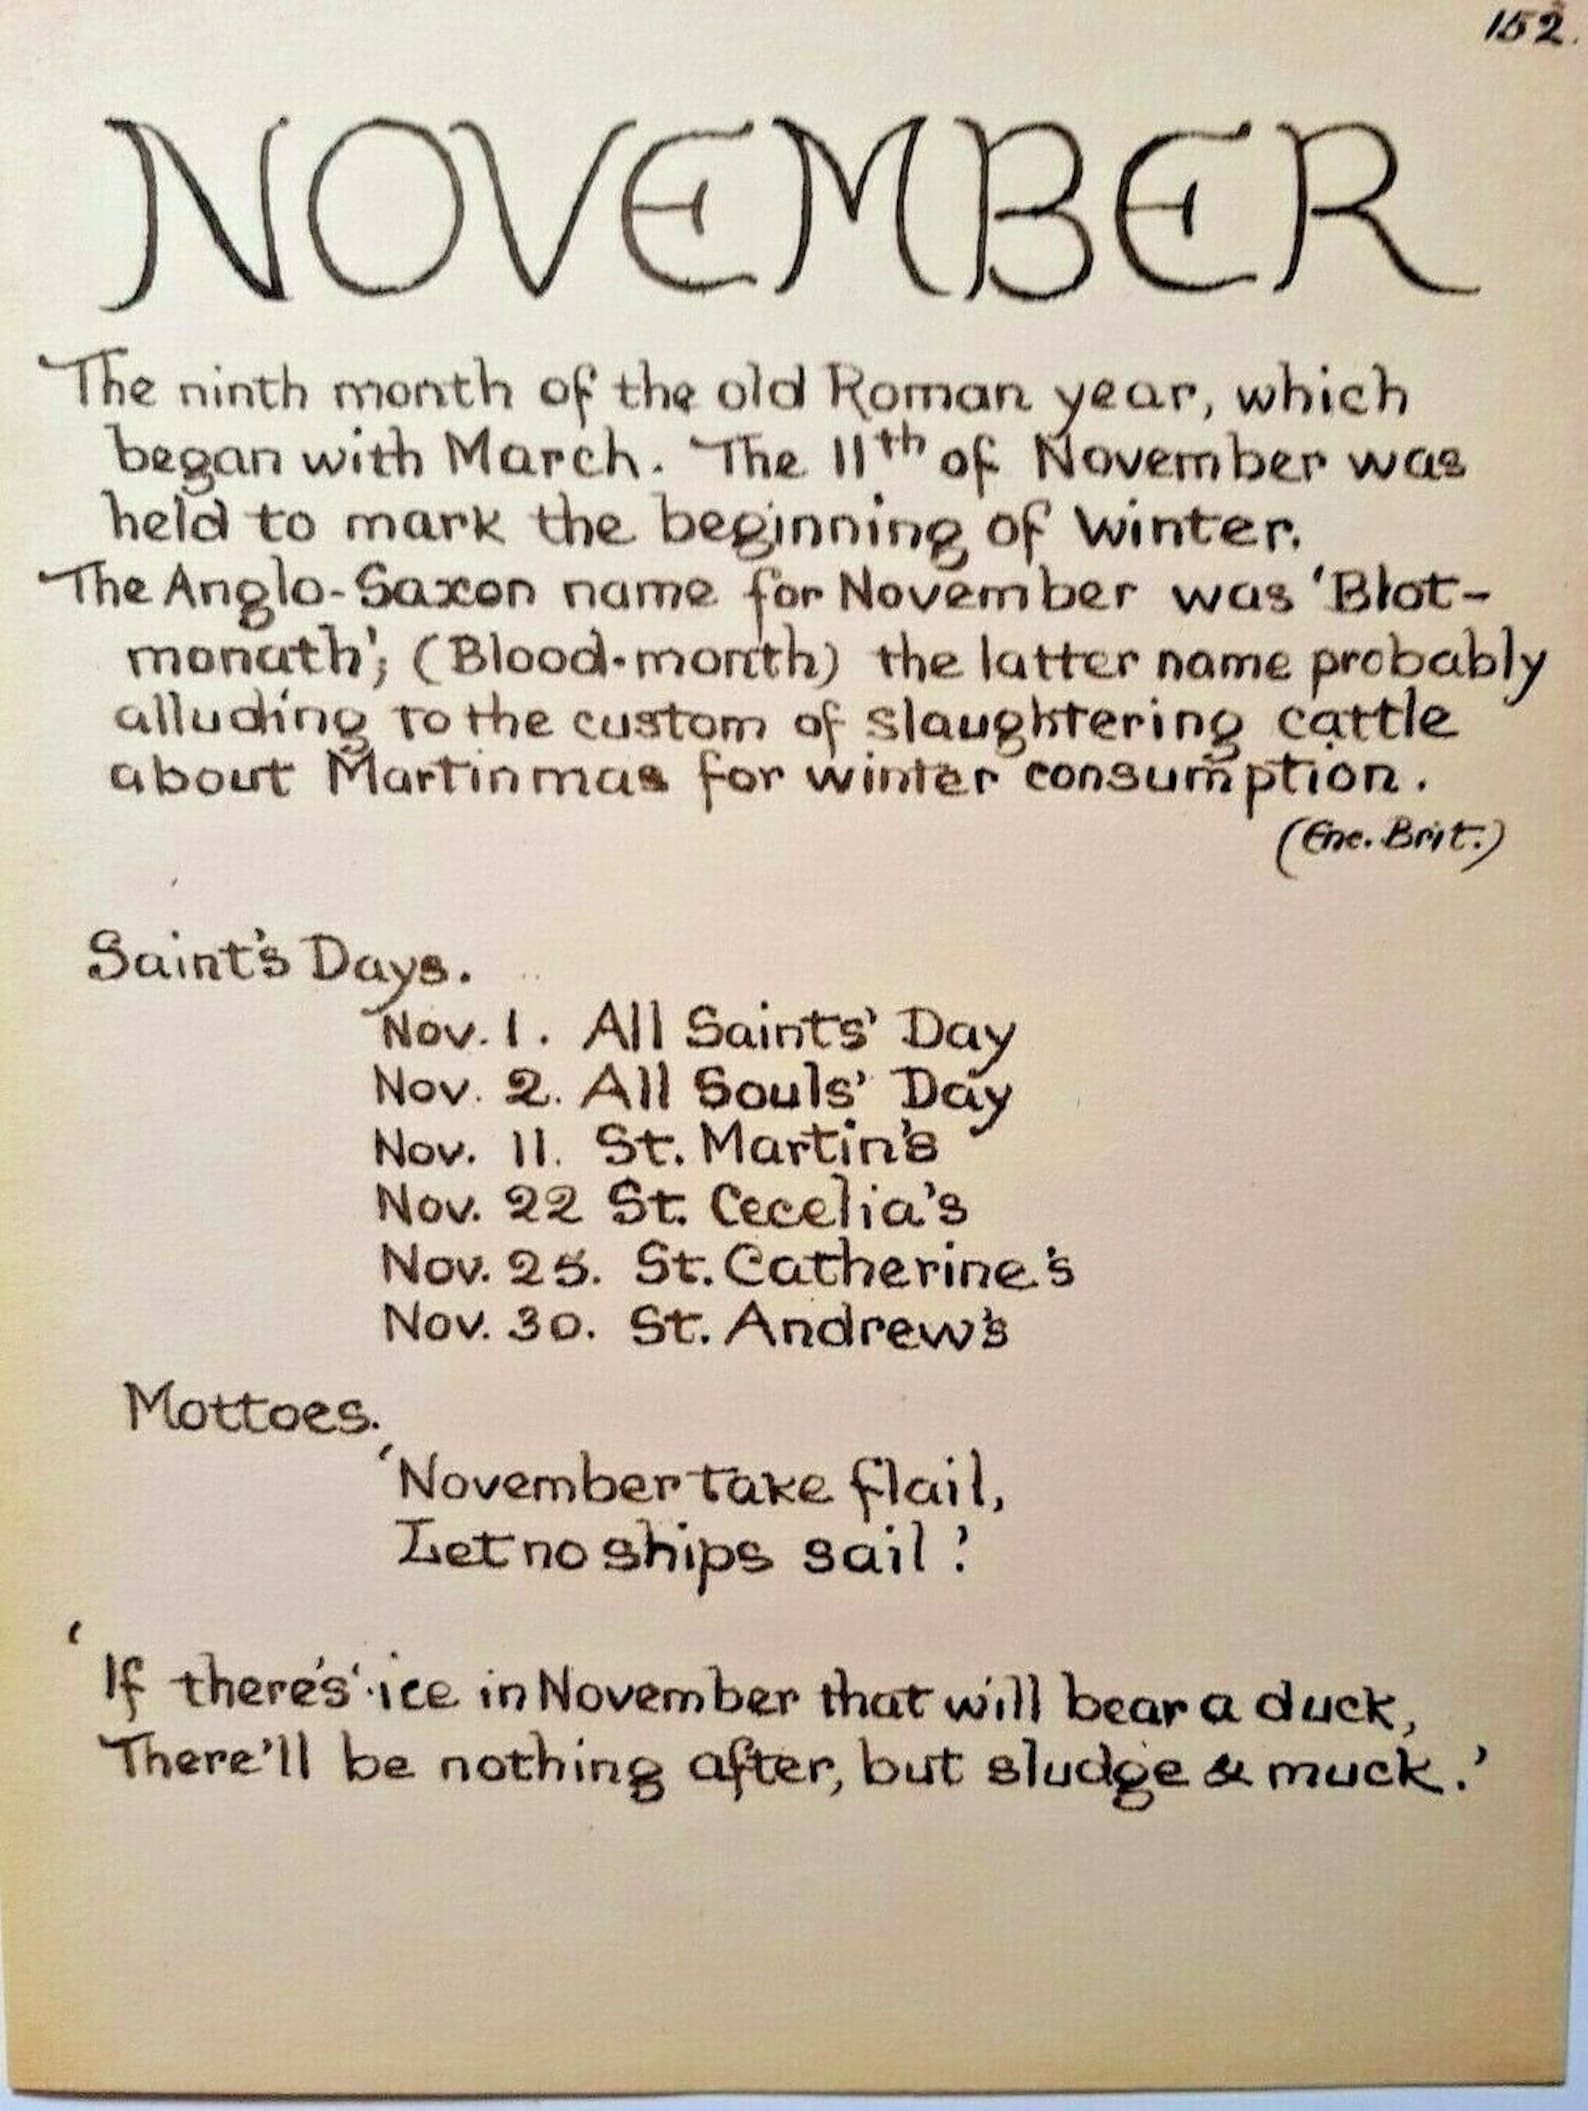 152.
NOVEMBER
The ninth month of the old Roman year, which
began with March. The 11th of November was
held to mark the beginning of Winter.
The Anglo-Saxon name for November was 'Blot-
monath'; (Blood-month) the latter name probably
alluding to the custom of slaughtering cattle
about Martinmas for winter consumption.
(Enc. Brit.)
Saint's Days.
Nov. 1. All Saints' Day
Nov. 2. All Souls' Day
Nov. 11. St. Martin's
Nov. 22 St. Cecelia's
Nov. 25. St. Catherine's
Nov. 30. St. Andrew's
Mottoes.
'November take flail,
Let no ships sail.'
'If there's ice in November that will bear a duck,
There'll be nothing after, but sludge & muck.'